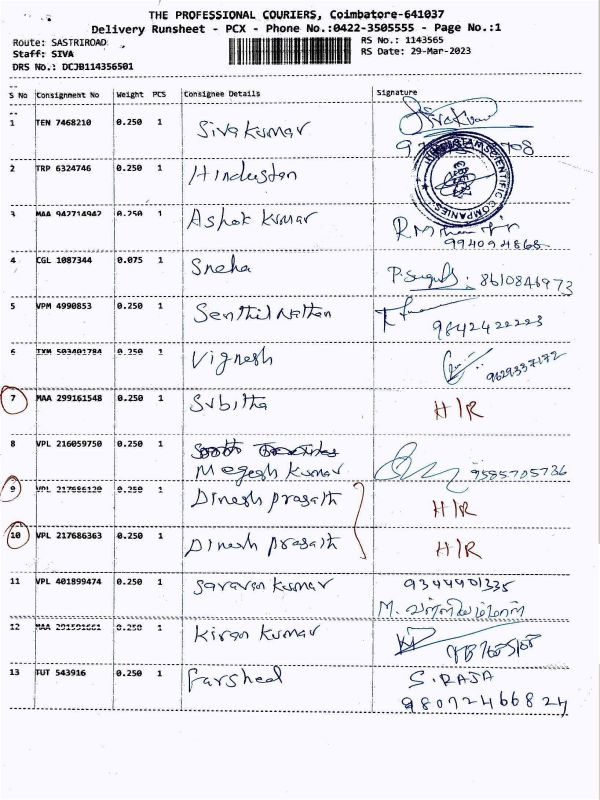 THE PROFESSIONAL COURIERS, Coimbatore-641037
Delivery Runsheet - PCX - Phone No.:0422-3505555 - Page No.:1
Route: SASTRIROAD
RS No.: 1143565
Staff: SIVA
RS Date: 29-Mar-2023
DRS No.: DCJB114356501
S No Consignment No Weight PCS Consignee Details Signature
1 TEN 7468210 0.250 1 Siva Kumar
2 TRP 6324746 0.250 1 Hindustan
HINDUSTAN SCIENTIFIC COMPANIES
3 MAA 942714942 0.250 1 Ashok Kumar
9940944868
4 CGL 1087344 0.075 1 Sneha 8610846973
5 VPM 4990853 0.250 1 Senthil Nathan
9842422223
6 TXM 503401784 0.250 1 Vignesh 9629337172
7 MAA 299161548 0.250 1 Srbitha H/R
8 VPL 216059750 0.250 1
Megesh Kumar 9585705736
9 VPL 217686120 0.250 1 Dinesh prasath H/R
10 VPL 217686363 0.250 1 Dinesh prasath H/R
11 VPL 401899474 0.250 1 Saravan Kumar 9344401335
M. வள்ளியம்மாள்
12 MAA 0.250 1 Kiran Kumar
13 TUT 543916 0.250 1 Farsheed S.RAJA
98072466824